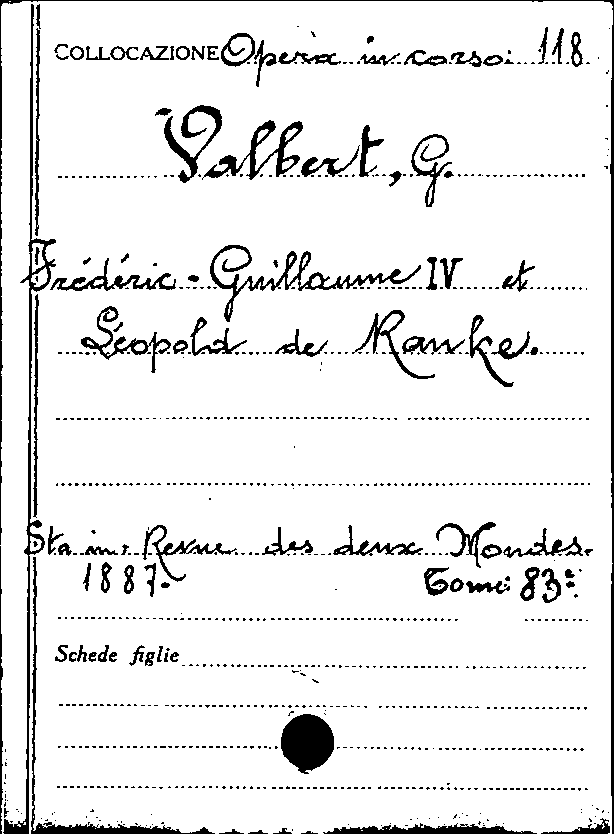 COLLOCAZIONE Opera in corso: 118
Valbert, G.
Frédéric-Guillaume IV et
Léopold de Ranke.
Sta in: Revue des deux Mondes.
1887. Tome: 83e.
Schede figlie